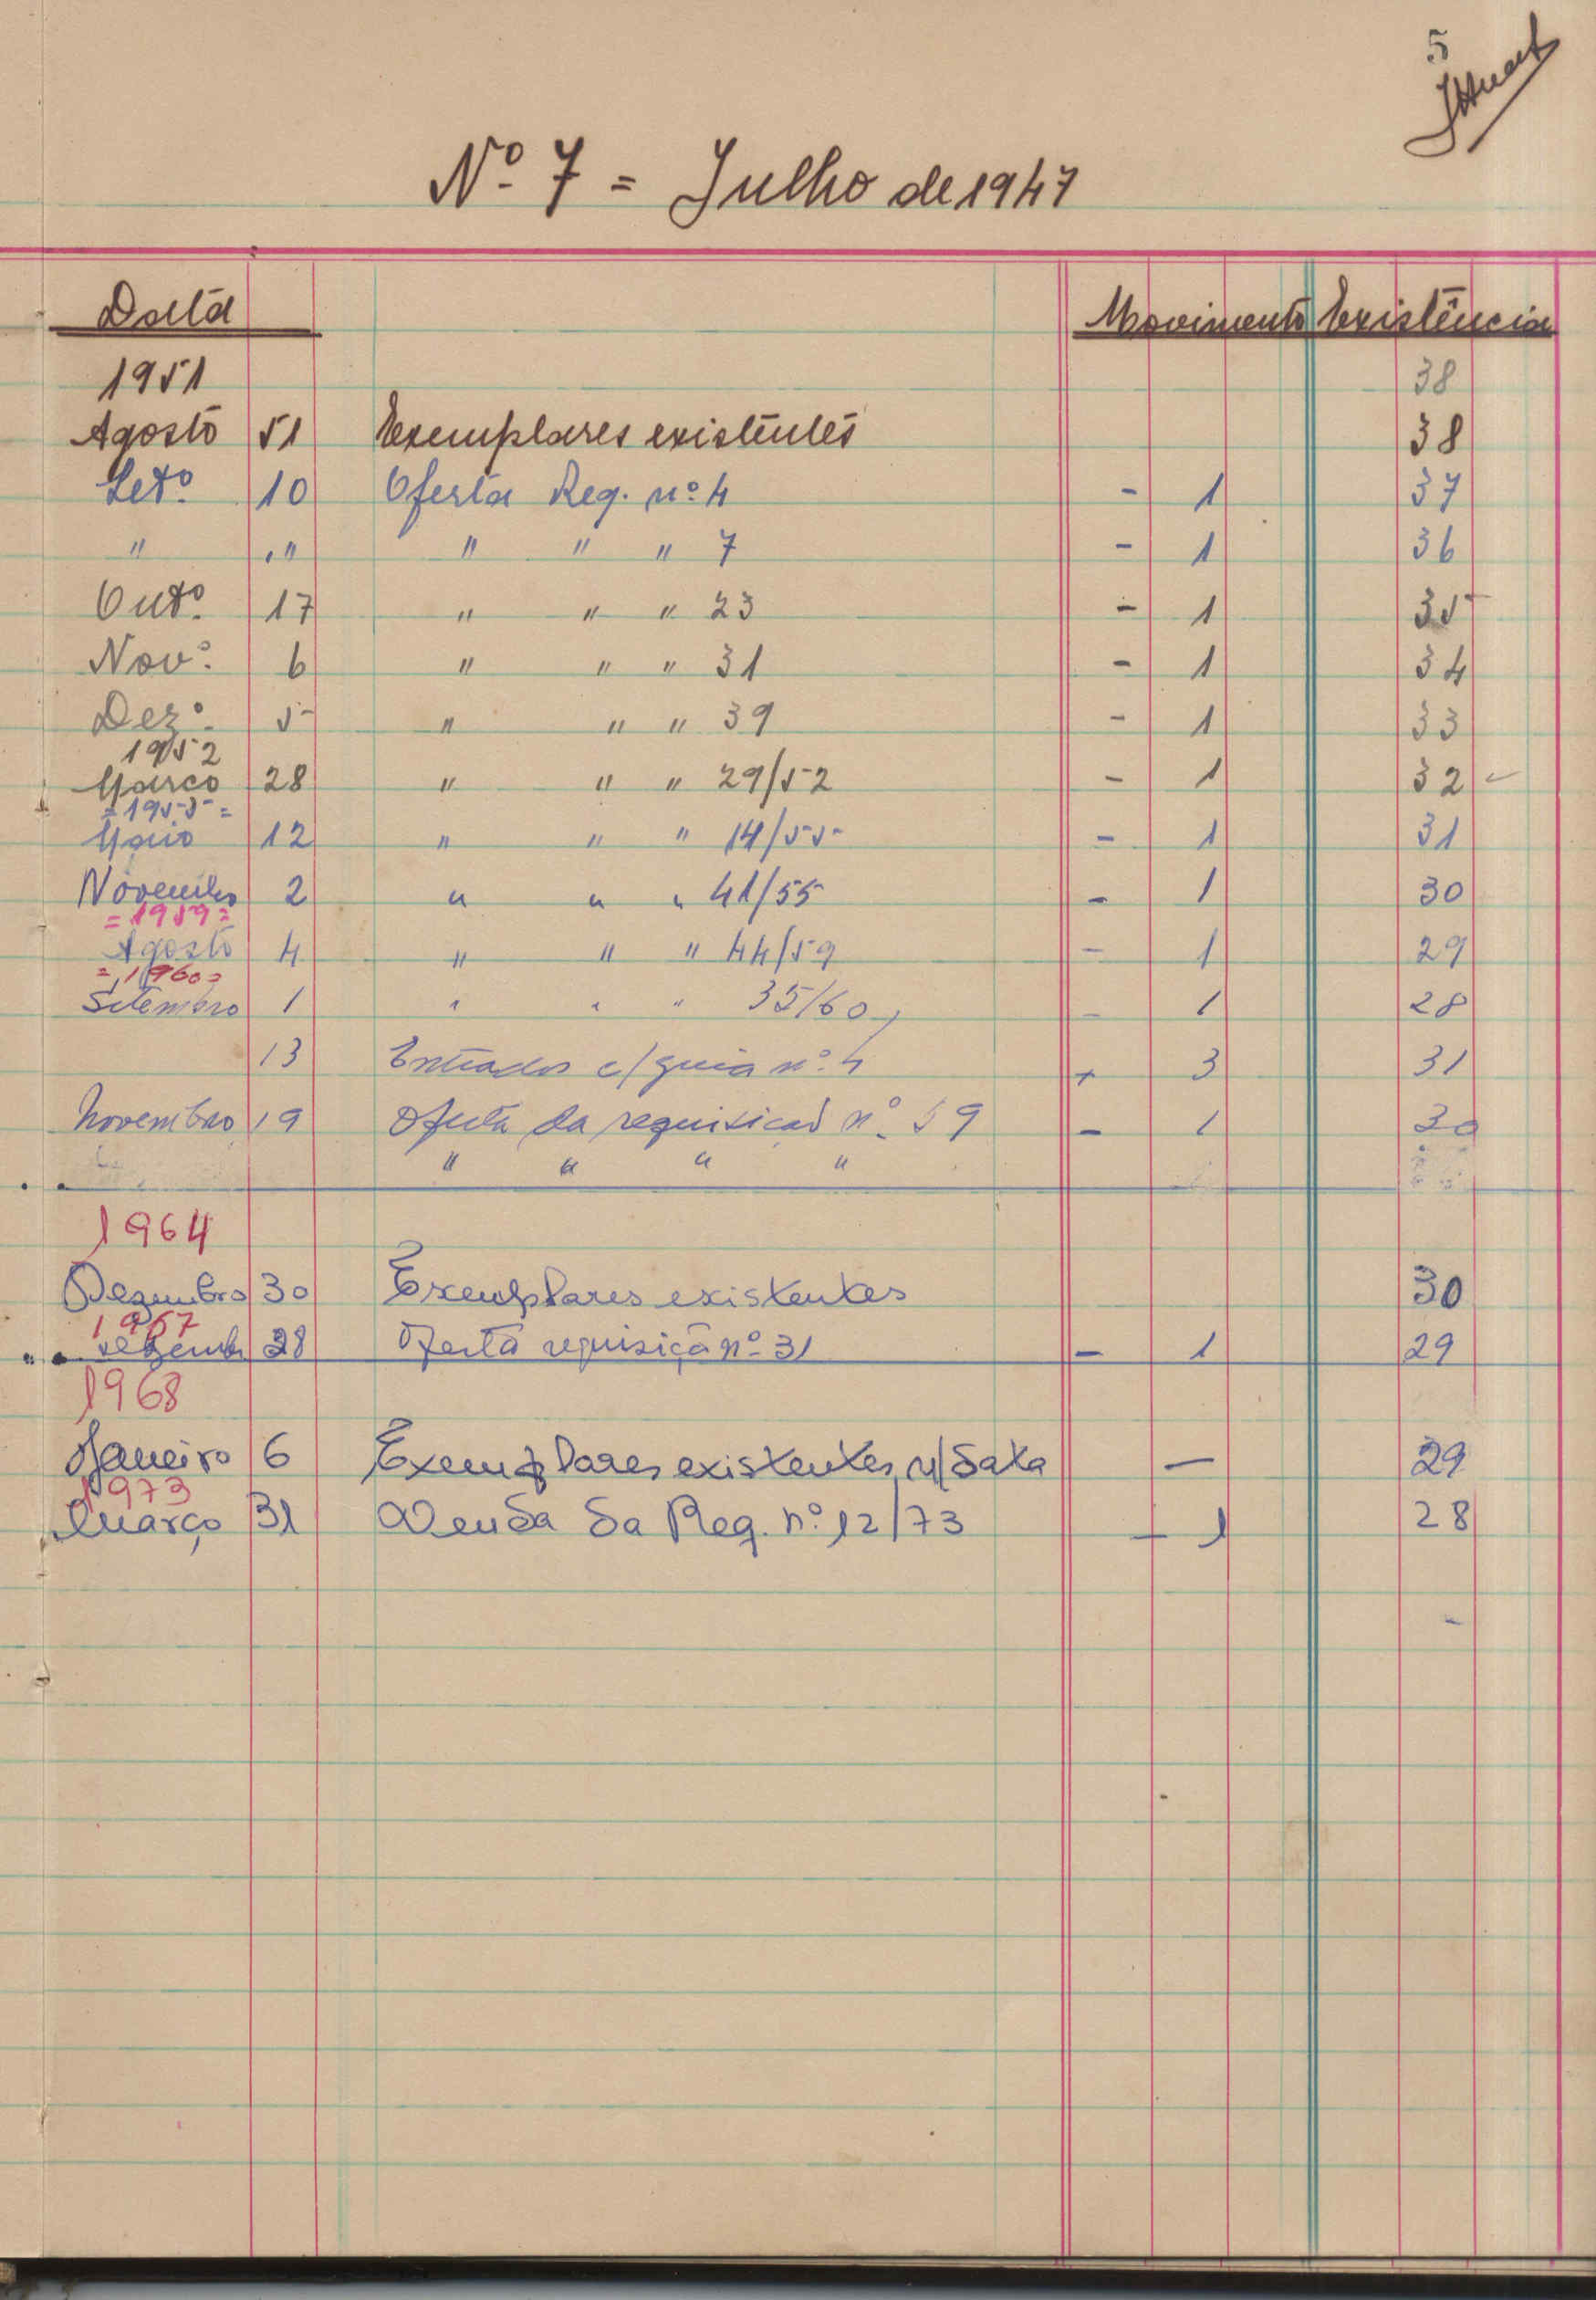 5
Nº 7 = Julho de 1947
Data Movimento Existência
1951 38
Agosto 51 Exemplares existentes 38
Setº 10 Oferta Req. nº 4 - 1 37
" " " " " 7 - 1 36
Outº 17 " " " 23 - 1 35
Novº 6 " " " 31 - 1 34
Dezº 5 " " " 39 - 1 33
1952
Março 28 " " " 29/52 - 1 32
=1955=
Maio 12 " " " 14/55 - 1 31
Novembro 2 " " " 41/55 - 1 30
=1959=
Agosto 4 " " " 44/59 - 1 29
=1960=
Setembro 1 " " " 35/60 - 1 28
13 Entrados c/ guia nº 4 + 3 31
Novembro 19 Oferta da requisicão nº 59 - 1 30
" " " "
1964
Dezembro 30 Exemplares existentes 30
1967
Dezemb 28 Oferta requisiçã nº 31 - 1 29
1968
Janeiro 6 Exemplares existentes n/data — 29
1973
Março 31 Venda da Req. nº 12/73 - 1 28